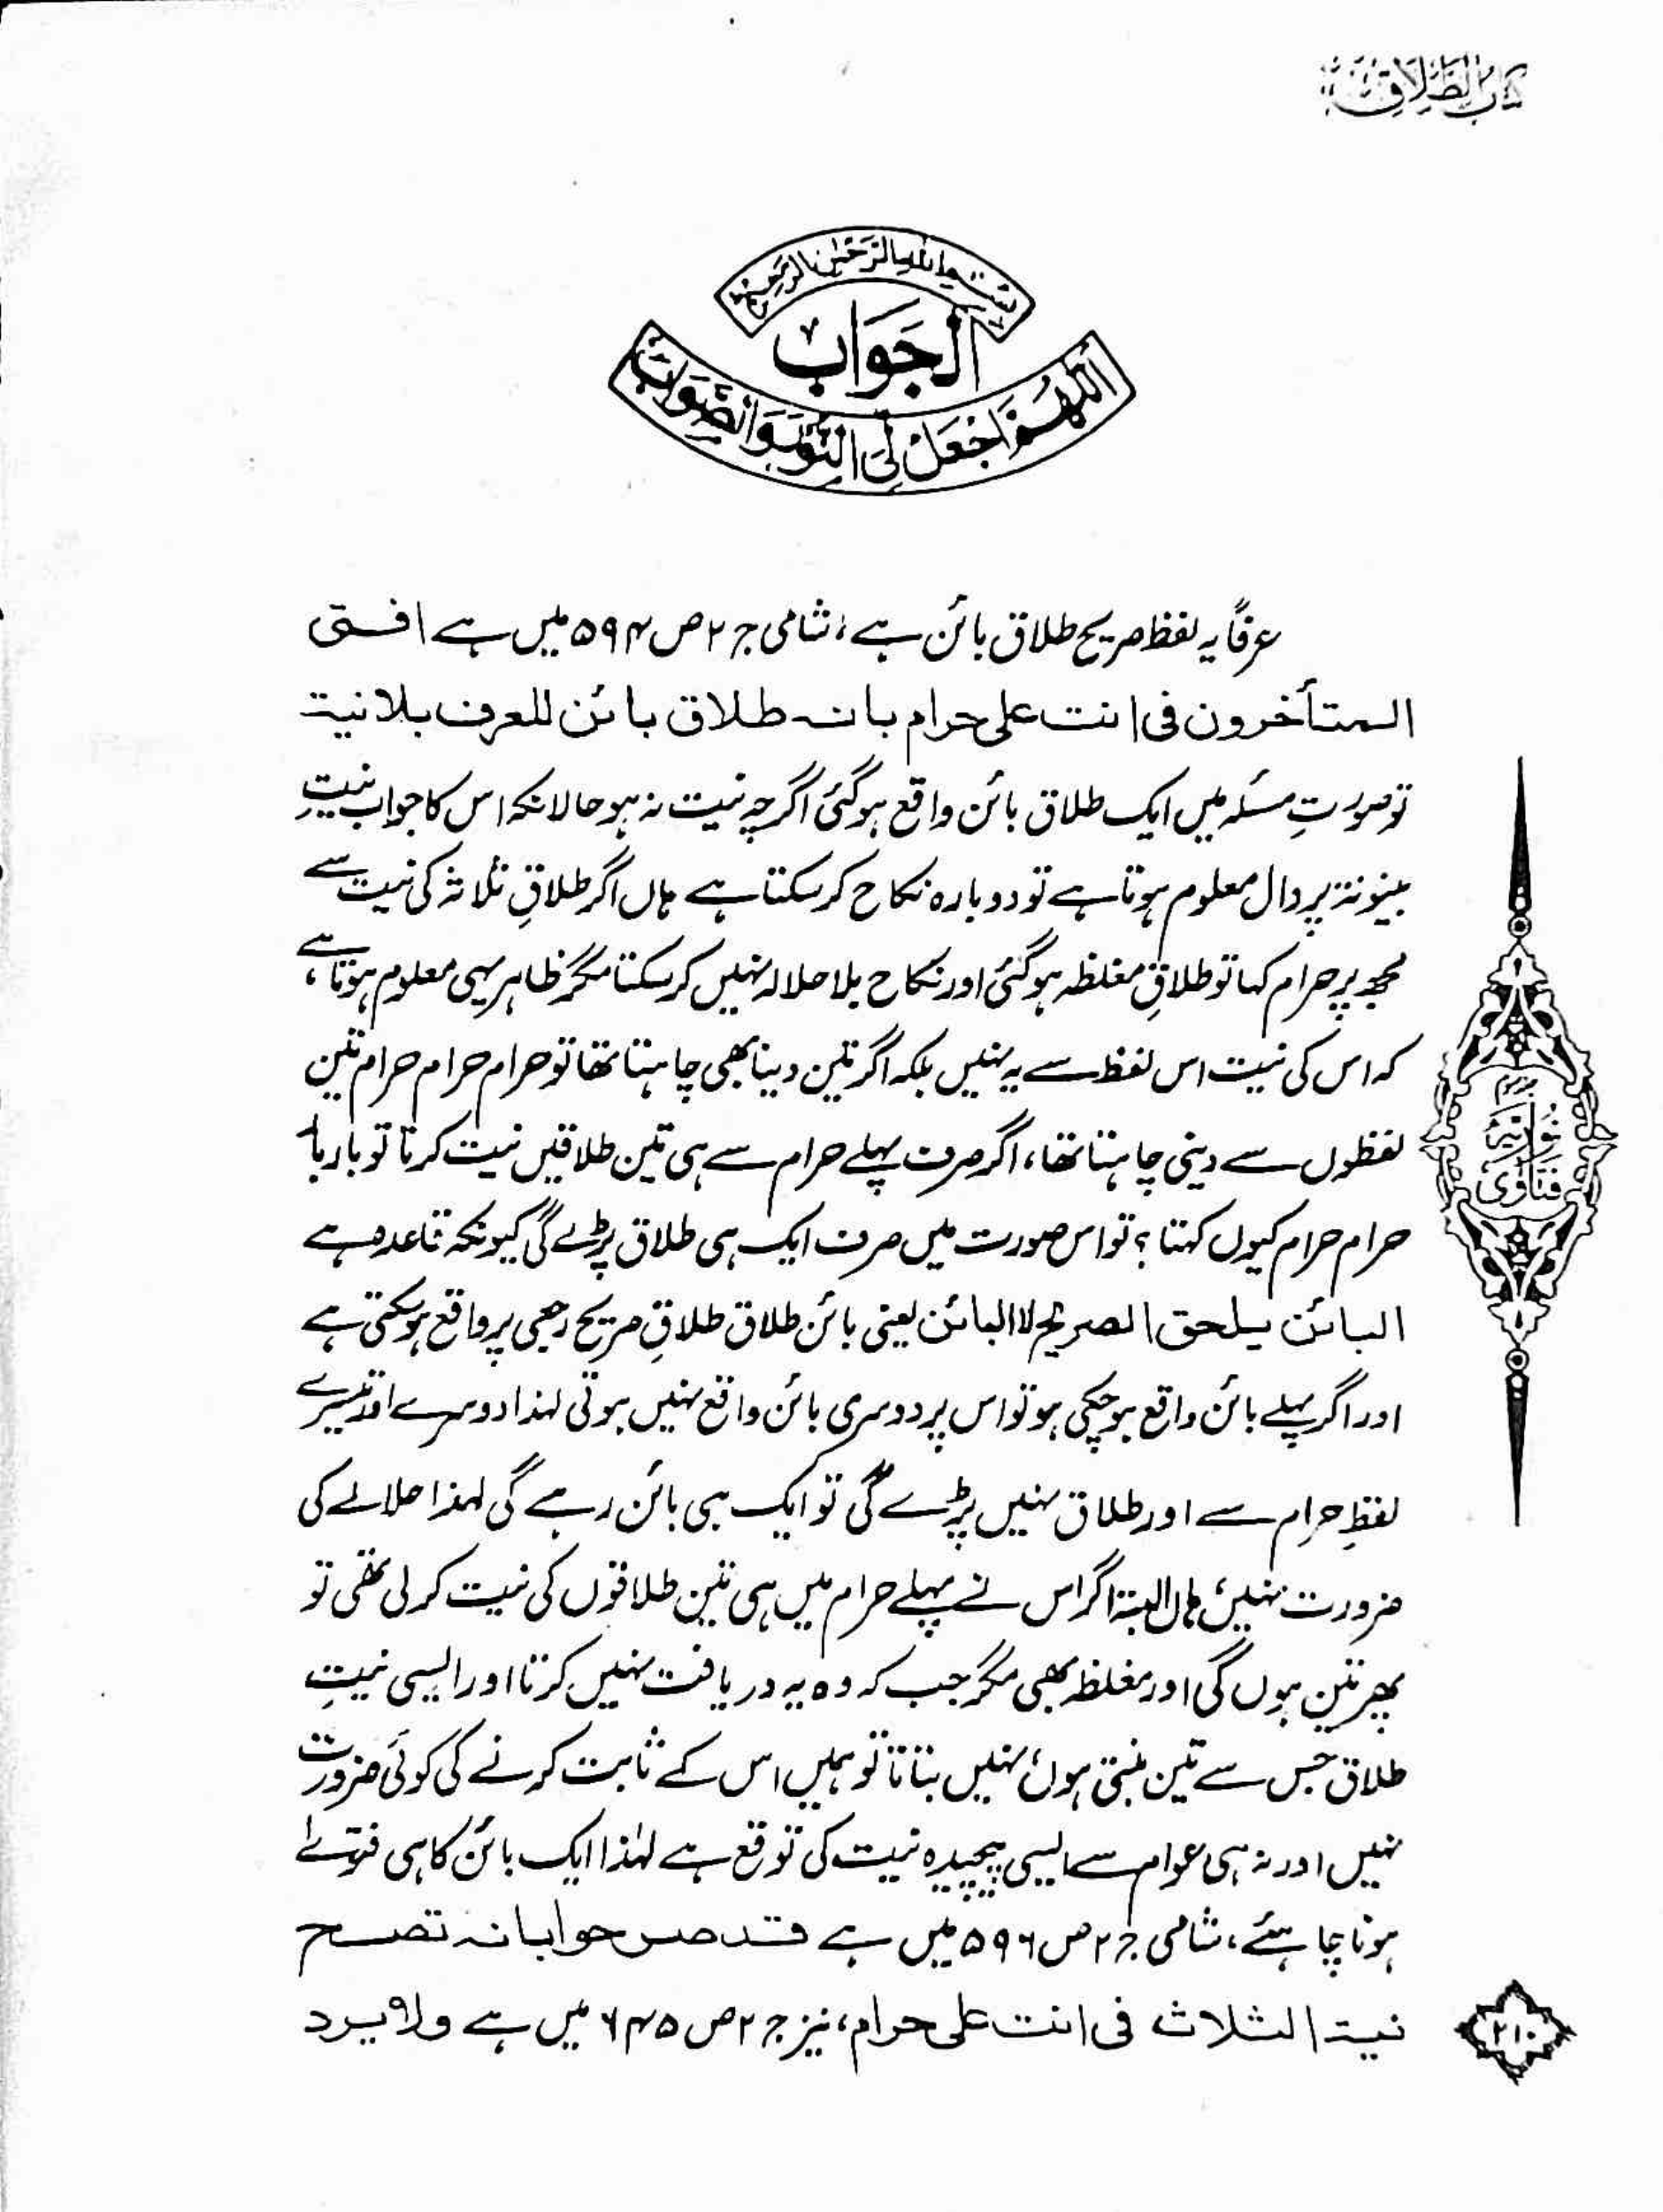 کتاب الطلاق
بسم الله الرحمن الرحيم
الجواب
اللهم اجعل لی النور والصواب
عرفاً یہ لفظ صریح طلاق بائن ہے، شامی ج ۲ ص ۵۹۴ میں ہے افتی
المتأخرون فی انت علی حرام بانہ طلاق بائن للعرف بلانیۃ
تو صورتِ مسئلہ میں ایک طلاق بائن واقع ہوگئی اگرچہ نیت نہ ہو حالانکہ اس کا جواب نیتِ
بینونۃ پر دال معلوم ہوتا ہے تو دوبارہ نکاح کرسکتا ہے ہاں اگر طلاقِ ثلاثہ کی نیت سے
مجھ پر حرام کہا تو طلاقِ مغلظہ ہوگئی اور نکاح بلا حلالہ نہیں کرسکتا مگر ظاہر یہی معلوم ہوتا ہے،
کہ اس کی نیت اس لفظ سے یہ نہیں بلکہ اگر تین دینا بھی چاہتا تھا تو حرام حرام حرام تین
لفظوں سے دینی چاہتا تھا، اگر صرف پہلے حرام سے ہی تین طلاقیں نیت کرتا تو بار بار
حرام حرام کیوں کہتا؟ تو اس صورت میں صرف ایک ہی طلاق پڑے گی کیونکہ قاعدہ ہے
البائن یلحق الصریح لا البائن یعنی بائن طلاق طلاقِ صریح رجعی پر واقع ہوسکتی ہے
اور اگر پہلے بائن واقع ہوچکی ہو تو اس پر دوسری بائن واقع نہیں ہوتی لہذا دوسرے اور تیسرے
لفظِ حرام سے اور طلاق نہیں پڑے گی تو ایک ہی بائن رہے گی لہذا حلالے کی
ضرورت نہیں، ہاں البتہ اگر اس نے پہلے حرام میں ہی تین طلاقوں کی نیت کرلی تھی تو
پھر تین ہوں گی اور مغلظہ بھی مگر جب کہ وہ یہ دریافت نہیں کرتا اور ایسی نیتِ
طلاق جس سے تین بنتی ہوں، نہیں بتاتا تو ہمیں اس کے ثابت کرنے کی کوئی ضرورت
نہیں اور نہ ہی عوام سے ایسی پیچیدہ نیت کی توقع ہے لہٰذا ایک بائن کا ہی فتوےٰ
ہونا چاہئے، شامی ج ۲ ص ۵۹۶ میں ہے قد صرحوا بانہ تصح
نیۃ الثلاث فی انت علی حرام، نیز ج ۲ ص ۶۴۵ میں ہے ولا یرد
فتاوی نوریہ
۲۱۰